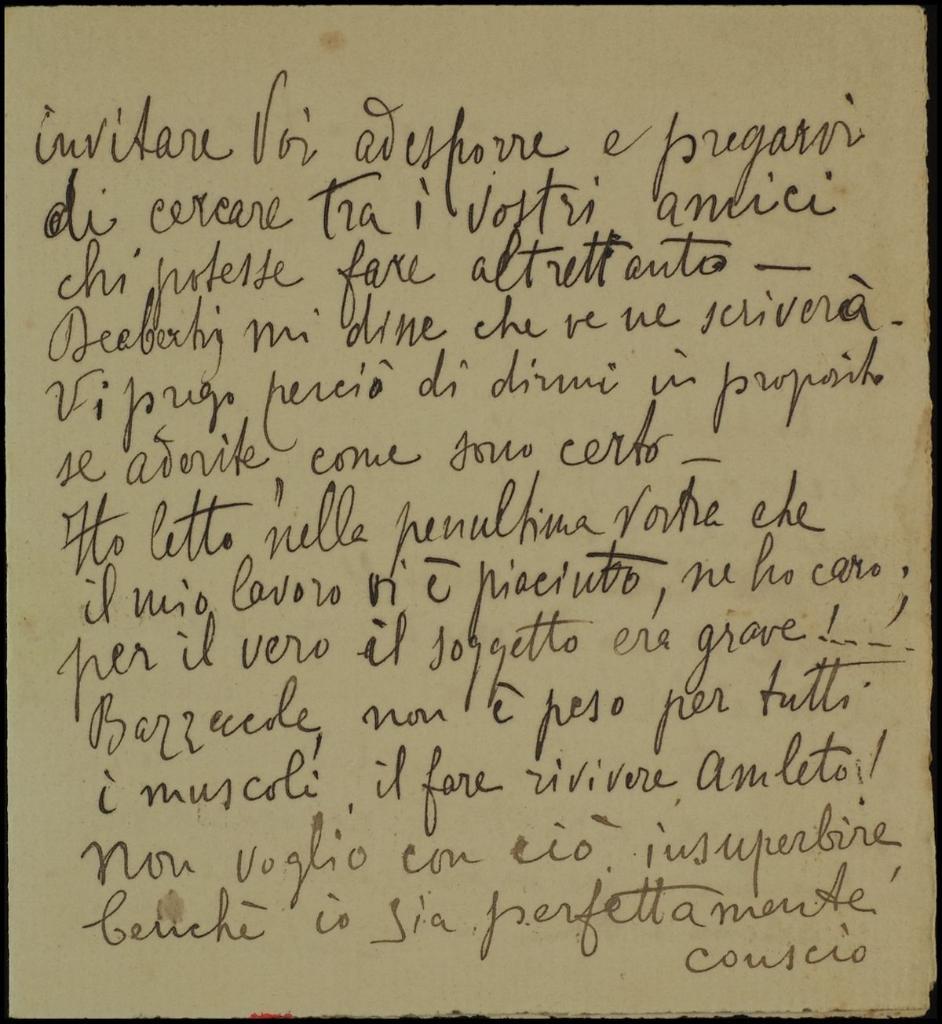 invitare Voi ad esporre e pregarvi
di cercare tra i vostri amici
chi potesse fare altrettanto —
mi disse che ve ne scriverà.
Vi prego perciò di dirmi in proposito
se aderite, come sono certo —
Ho letto nella penultima Vostra che
il mio lavoro vi è piaciuto, ne ho caro;
per il vero il soggetto era grave!...!
Bazzecole, non è peso per tutti
i muscoli, il fare rivivere Amleto!
Non voglio con ciò insuperbire,
benchè io sia perfettamente
conscio